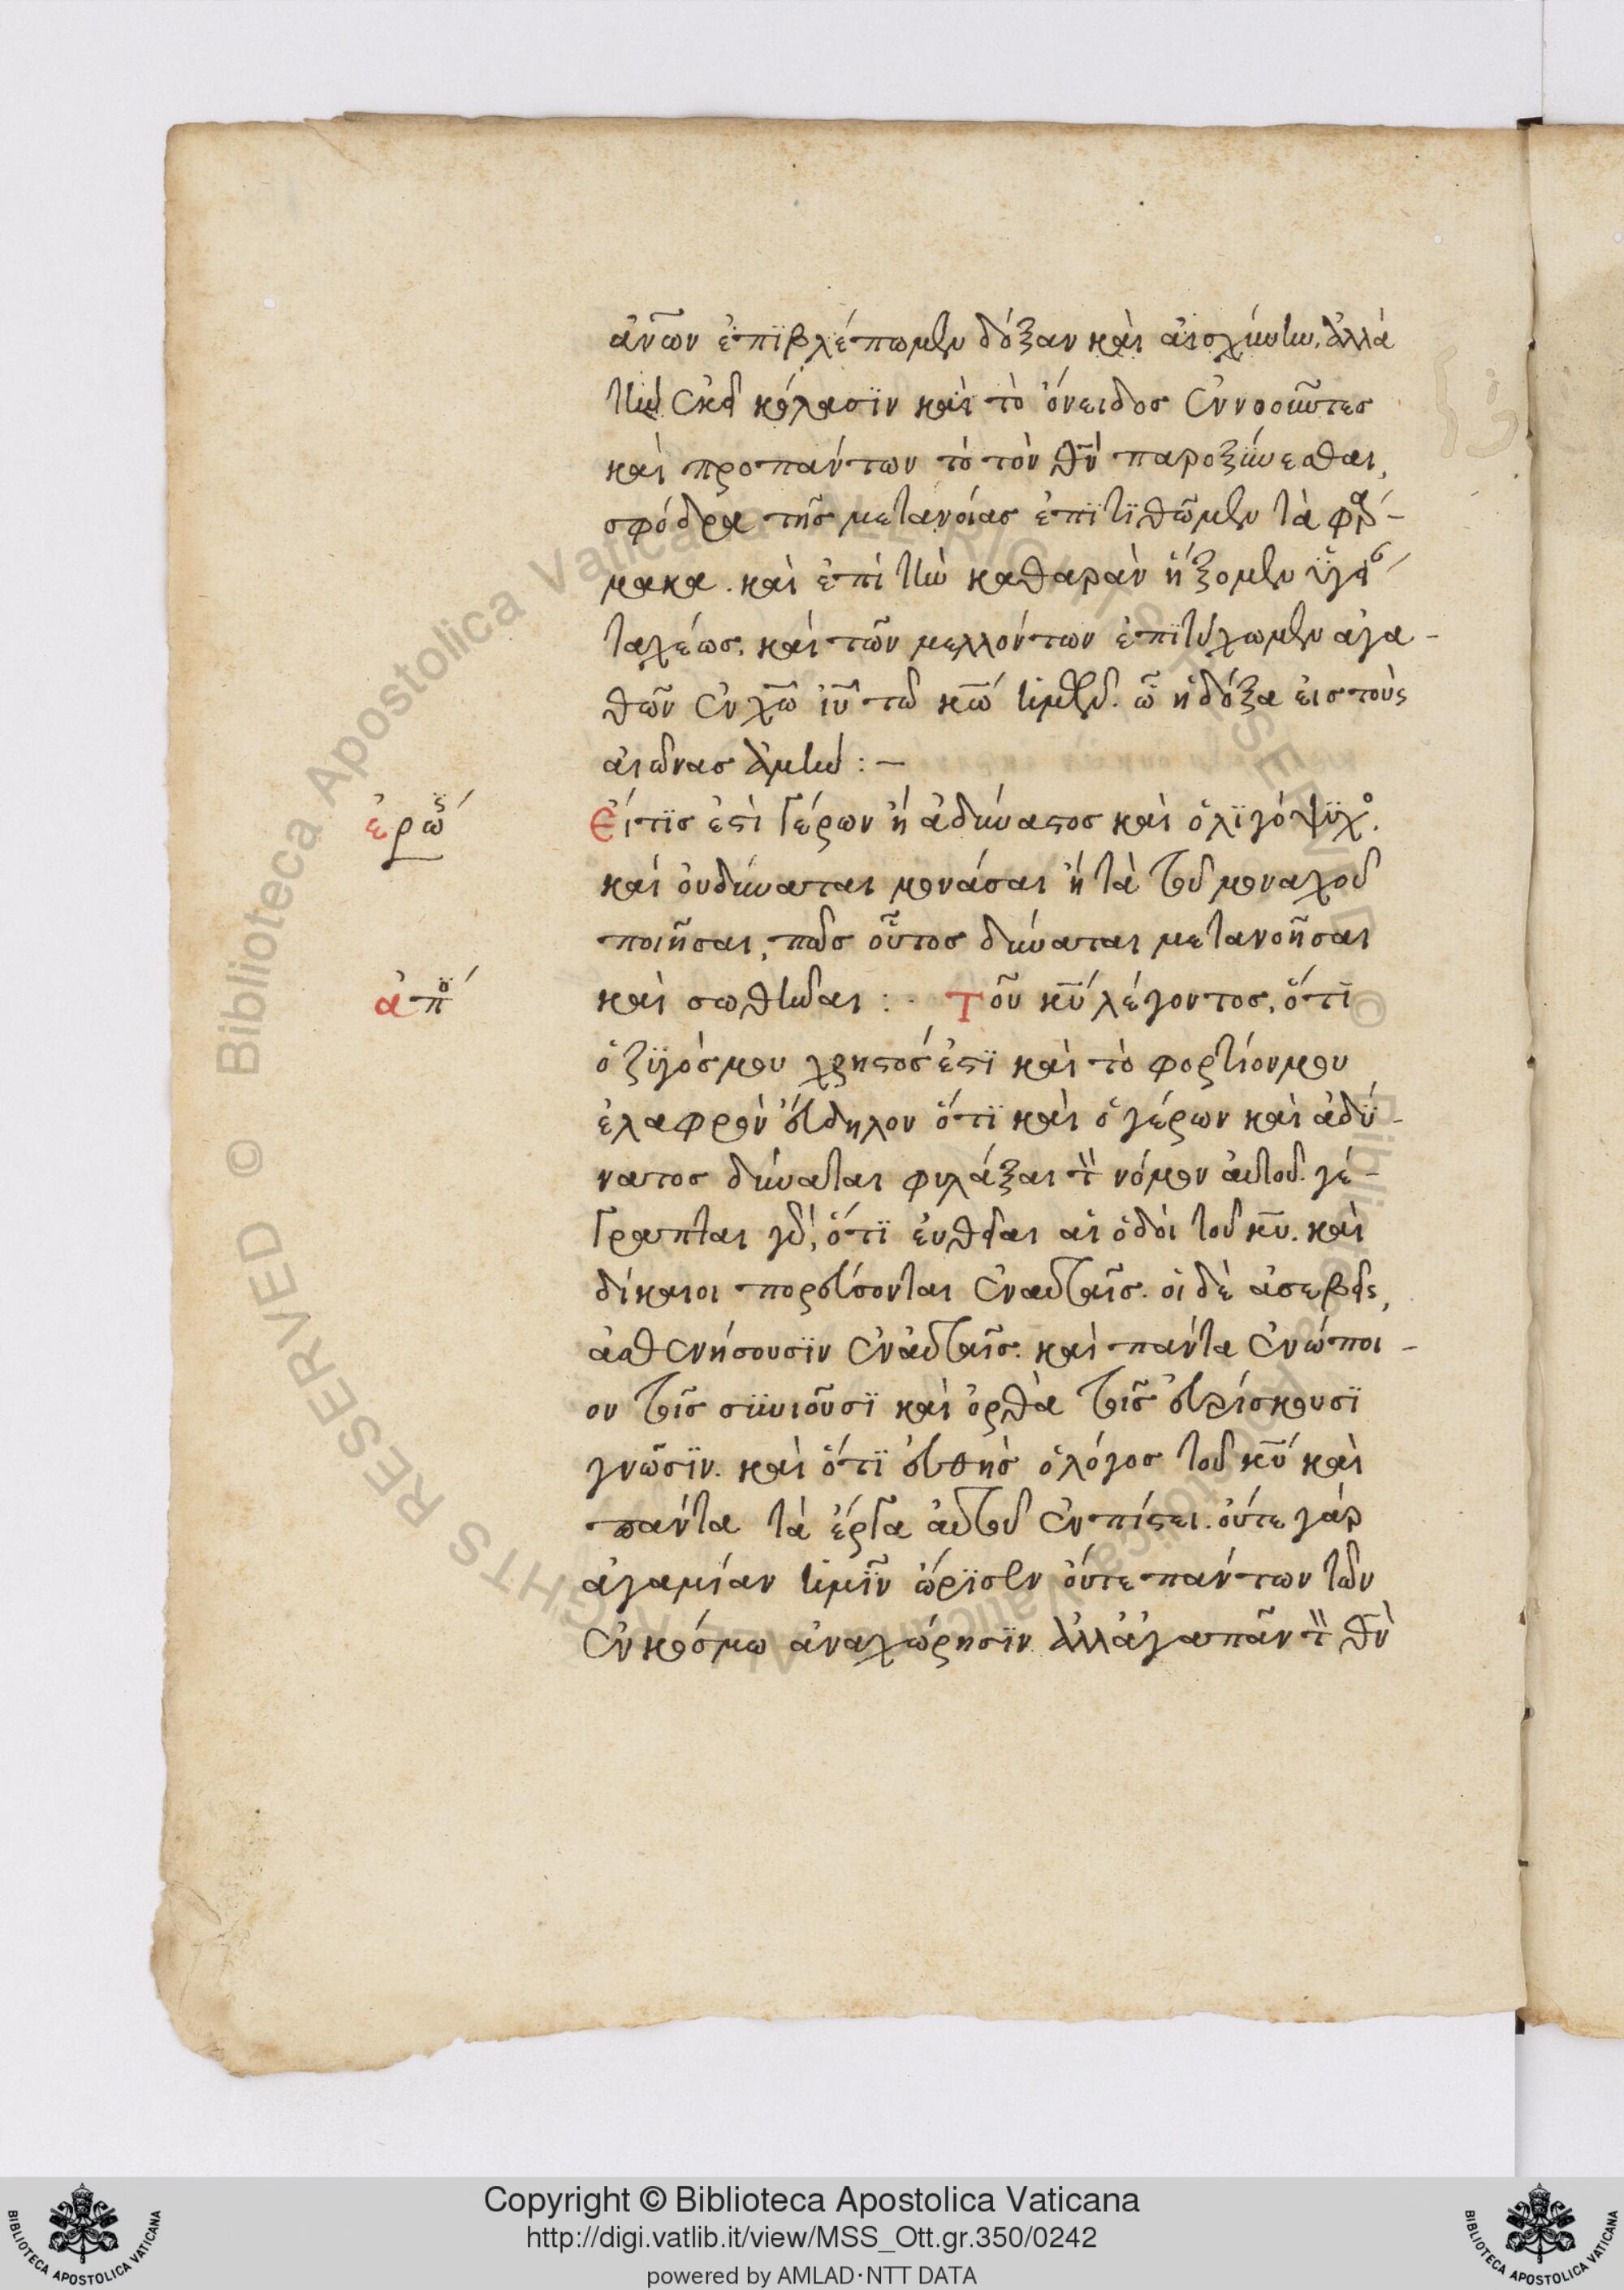 ἀν͞ων ἐπϊβλέπωμεν δόξαν καὶ αἰσχύνην. ἀλλὰ
τὴν ἐκεῖ κόλασϊν καὶ τὸ ὄνειδος ἐννοοῦντες
καὶ προπάντων τὸ τὸν θ͞ν παροξΰνεσθαι,
σφόδρα τῆς μετανοίας ἐπϊτϊθῶμεν τὰ φάρ-
μακα. καὶ ἐπὶ τὴν καθαρὰν ἥξομεν ὑγεί
ταχέως. καὶ τῶν μελλόντων ἐπϊτύχωμεν ἀγα-
θῶν ἐν χ͞ω ἰ͞υ τῶ κ͞ω ἡμῶν. ὧ ἡ δόξα εἰς τοὺς
αἰῶνας ἀμήν : —
ἐρώς
Εἴτϊς ἐστὶ γέρων ἢ ἀδύνατος καὶ ὀλϊγόψϋχο.
καὶ οὐ δύναται μονάσαι ἢ τὰ τοῦ μοναχοῦ
ποιῆσαι, πῶς οὗτος δύναται μετανοῆσαι
ἀπό
καὶ σωθῆναι : Τοῦ κ͞υ λέγοντος, ὅτϊ
ὁ ζϋγός μου χρηστός ἐστϊ καὶ τὸ φορτίον μου
ἐλαφρὸν εὔδηλον ὅτϊ καὶ ὁ γέρων καὶ ἀδΰ-
νατος δύναται φυλάξαι τὸν νόμον αὐτοῦ. γέ-
γραπται γὰρ, ὅτϊ εὐθεῖαι αἱ ὁδοὶ τοῦ κ͞υ. καὶ
δίκαιοι πορεύσονται ἐν αὐταῖς. οἱ δὲ ἀσεβεῖς,
ἀσθενήσουσϊν ἐν αὐταῖς. καὶ πάντα ἐνώπι-
ον τοῖς σϋνιοῦσϊ καὶ ὀρθὰ τοῖς εὑρίσκουσϊ
γνῶσϊν. καὶ ὅτϊ εὐθὴς ὁ λόγος τοῦ κ͞υ καὶ
πάντα τὰ ἔργα αὐτοῦ ἐν πίστει. οὔτε γὰρ
ἀγαμίαν ἡμῖν ὥρϊσεν οὔτε πάντων τῶν
ἐν κόσμω ἀναχώρησϊν ἀλλ' ἀγαπᾶν τὸν θ͞ν
Copyright © Biblioteca Apostolica Vaticana
http://digi.vatlib.it/view/MSS_Ott.gr.350/0242
powered by AMLAD·NTT DATA